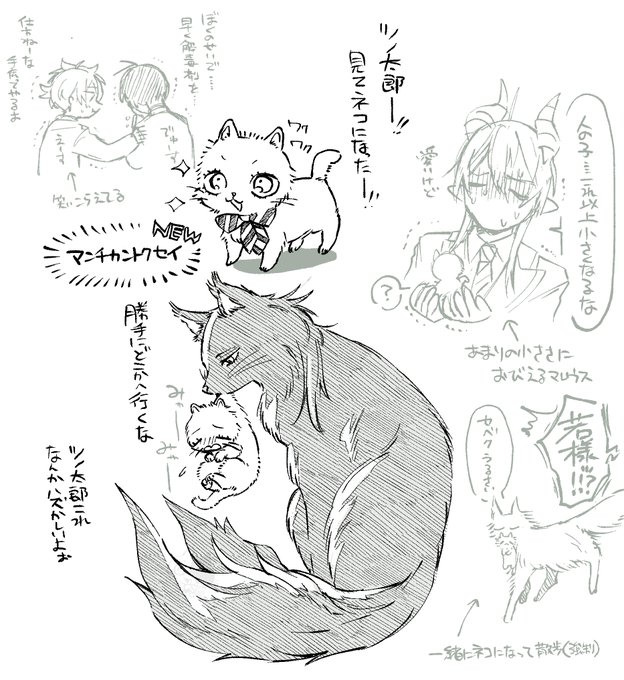 ぼくのせいで……
早く解毒剤を…
仕方ねーな
手伝ってやるよ
でゅーす
えーす
笑いこらえてる
ツノ太郎ー!!
見てネコになったー!!
ワクワク
NEW
マンチカントクセイ
人の子…これ以上小さくなるな
愛いけど
?
あまりの小ささに
おびえるマレウス
勝手にどこかへ行くな
みゃー
みゃー
ツノ太郎これ
なんかハズかしいよぉ
若様!!!?
セベクうるさい
一緒にネコになって散歩(強制)